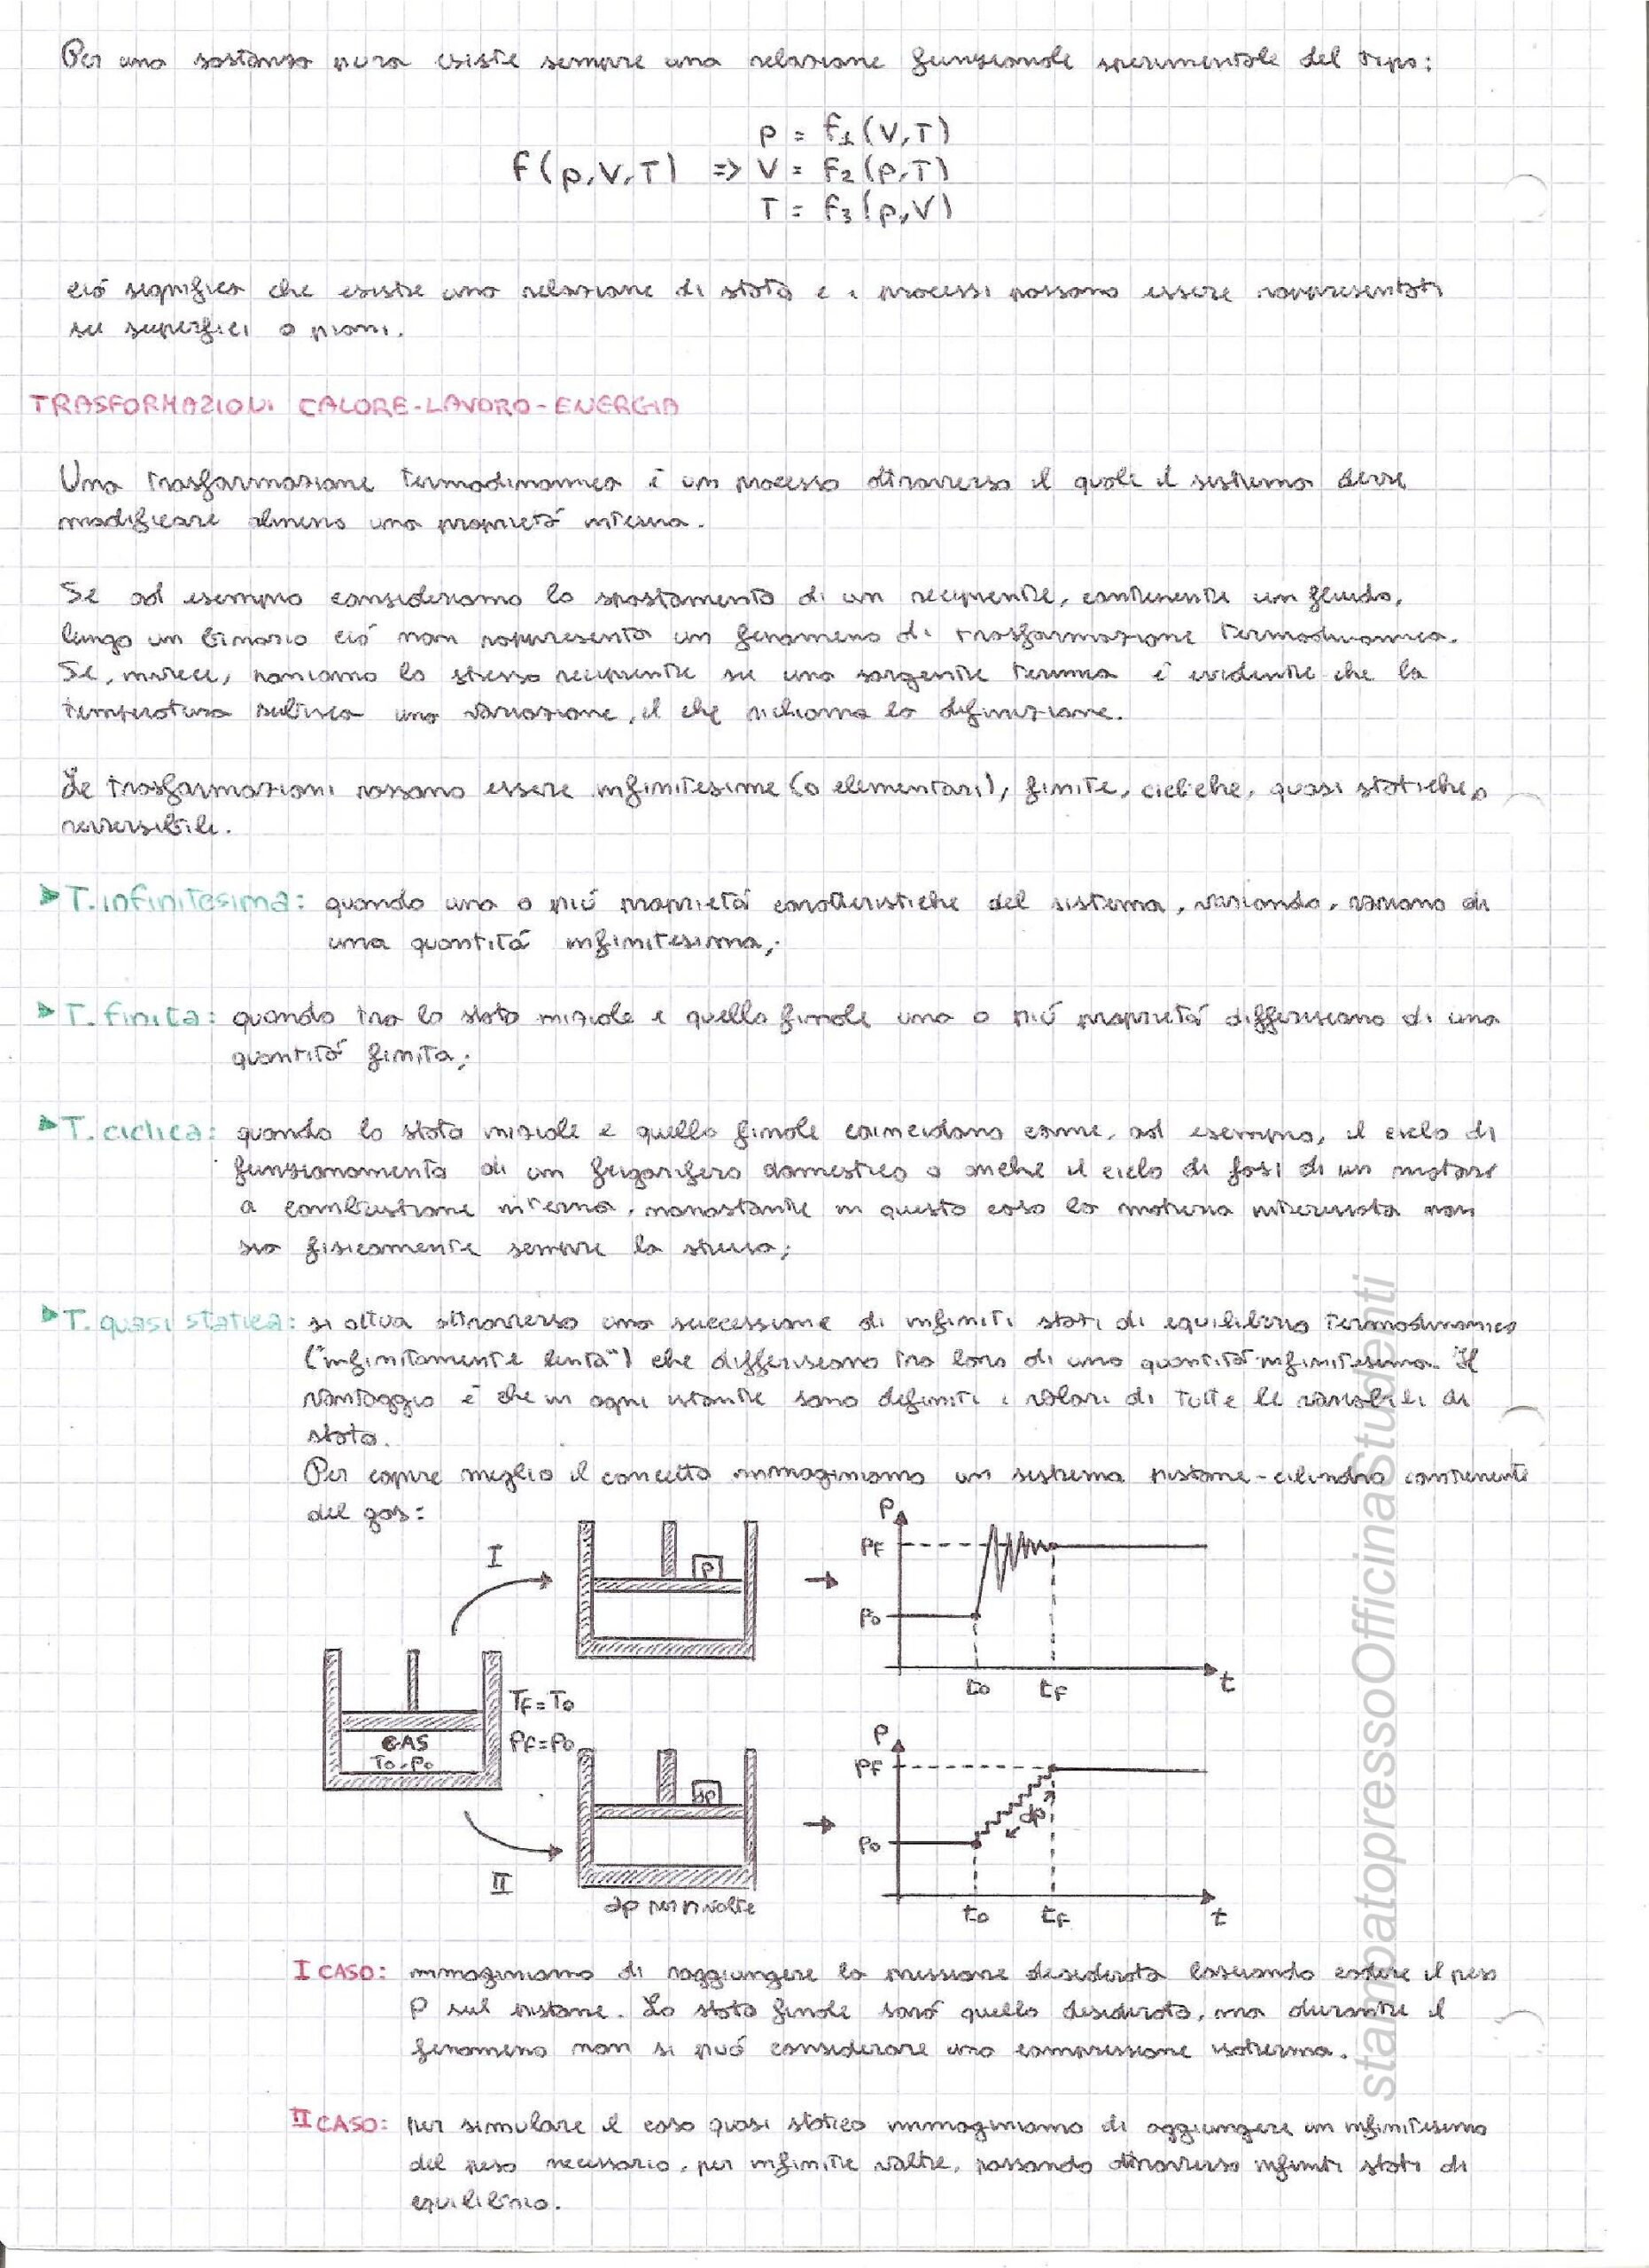 Per una sostanza pura esiste sempre una relazione funzionale sperimentale del tipo:
p = f1(V,T)
f(p,V,T) => V = f2(p,T)
T = f3(p,V)
ció significa che esiste una relazione di stato e i processi possono essere rappresentati
su superfici o piani.
TRASFORMAZIONI CALORE-LAVORO-ENERGIA
Una trasformazione termodinamica é un processo attraverso il quale il sistema deve
modificare almeno una proprietá interna.
Se ad esempio consideriamo lo spostamento di un recipiente, contenente un fluido,
lungo un binario ció non rappresenta un fenomeno di trasformazione termodinamica.
Se, invece, poniamo lo stesso recipiente su una sorgente termica é evidente che la
temperatura subisca una variazione, il che richiama la definizione.
Le trasformazioni possono essere infinitesime (o elementari), finite, cicliche, quasi statiche o
reversibili.
T. infinitesima: quando una o piú proprietá caratteristiche del sistema, variando, variano di
una quantitá infinitesima;
T. finita: quando tra lo stato iniziale e quello finale una o piú proprietá differiscano di una
quantitá finita;
T. ciclica: quando lo stato iniziale e quello finale coincidano come, ad esempio, il ciclo di
funzionamento di un frigorifero domestico o anche il ciclo di fasi di un motore
a combustione interna, nonostante in questo caso la materia interessata non
sia fisicamente sempre la stessa;
T. quasi statica: si attua attraverso una successione di infiniti stati di equilibrio termodinamico
("infinitamente lenta") che differiscano tra loro di una quantitá infinitesima. Il
vantaggio é che in ogni istante sono definiti i valori di tutte le variabili di
stato.
Per capire meglio il concetto immaginiamo un sistema pistone-cilindro contenente
del gas:
I
P
p
pF
p0
t0
tF
t
GAS
T0, p0
TF=T0
PF=P0
II
dp
dp per n volte
p
pF
p0
dp
t0
tF
t
I CASO: immaginiamo di raggiungere la pressione desiderata lasciando cadere il peso
P sul pistone. Lo stato finale sará quello desiderato, ma durante il
fenomeno non si puó considerare una compressione isoterma.
II CASO: per simulare il caso quasi statico immaginiamo di aggiungere un infinitesimo
del peso necessario, per infinite volte, passando attraverso infiniti stati di
equilibrio.
stampatopressoOfficinaStudenti